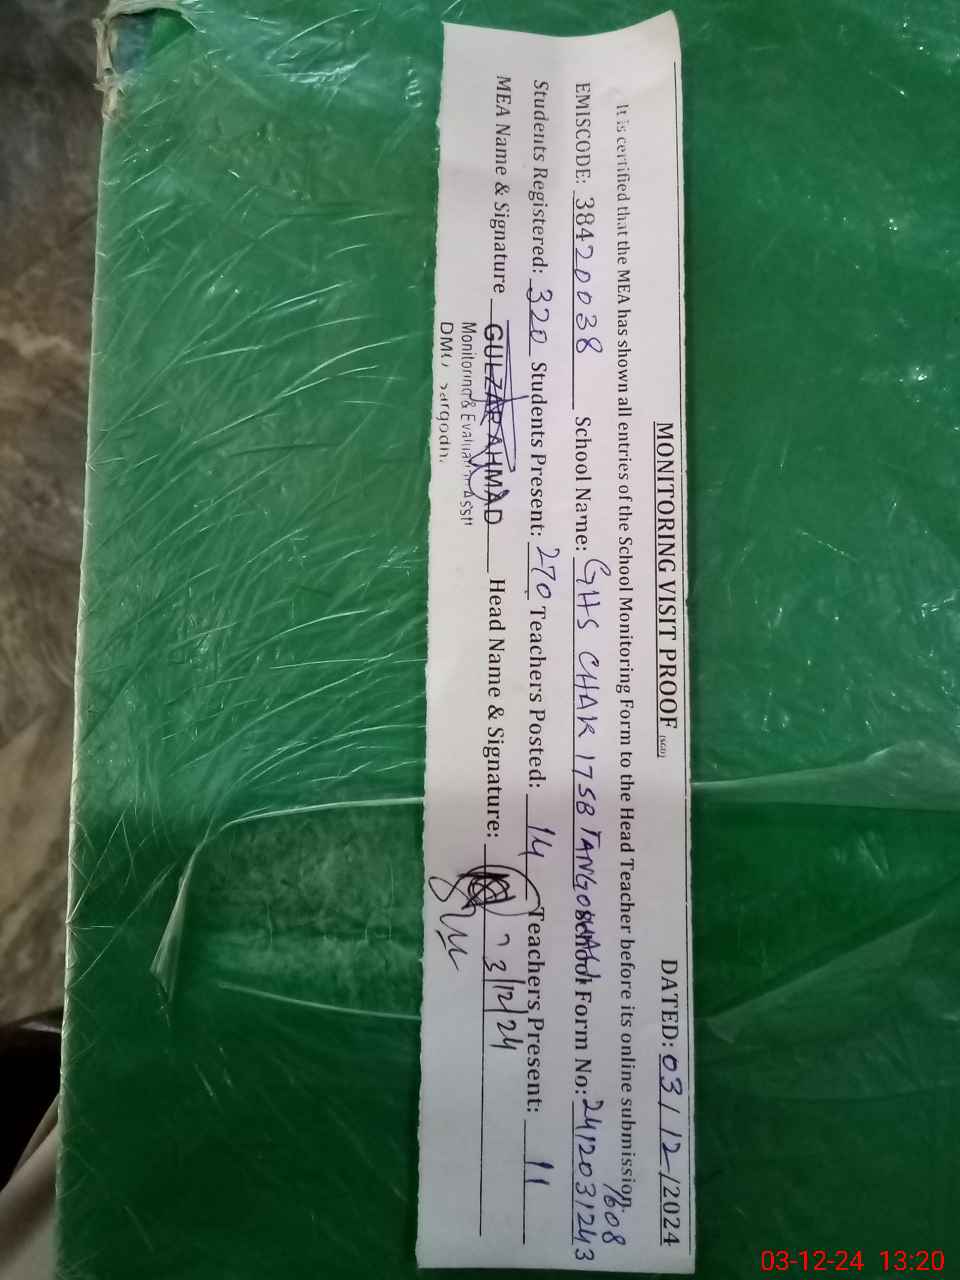 MONITORING VISIT PROOF (SGD) DATED: 03/12/2024
It is certified that the MEA has shown all entries of the School Monitoring Form to the Head Teacher before its online submission.
1608
EMISCODE: 38420038 School Name: GHS CHAK 175B TANGOWALI School Form No: 2412031243
Students Registered: 320 Students Present: 270 Teachers Posted: 14 Teachers Present: 11
MEA Name & Signature GULZAR AHMAD Head Name & Signature: 3/12/24
Monitoring & Evaluation Asstt
DMO Sargodh
03-12-24 13:20